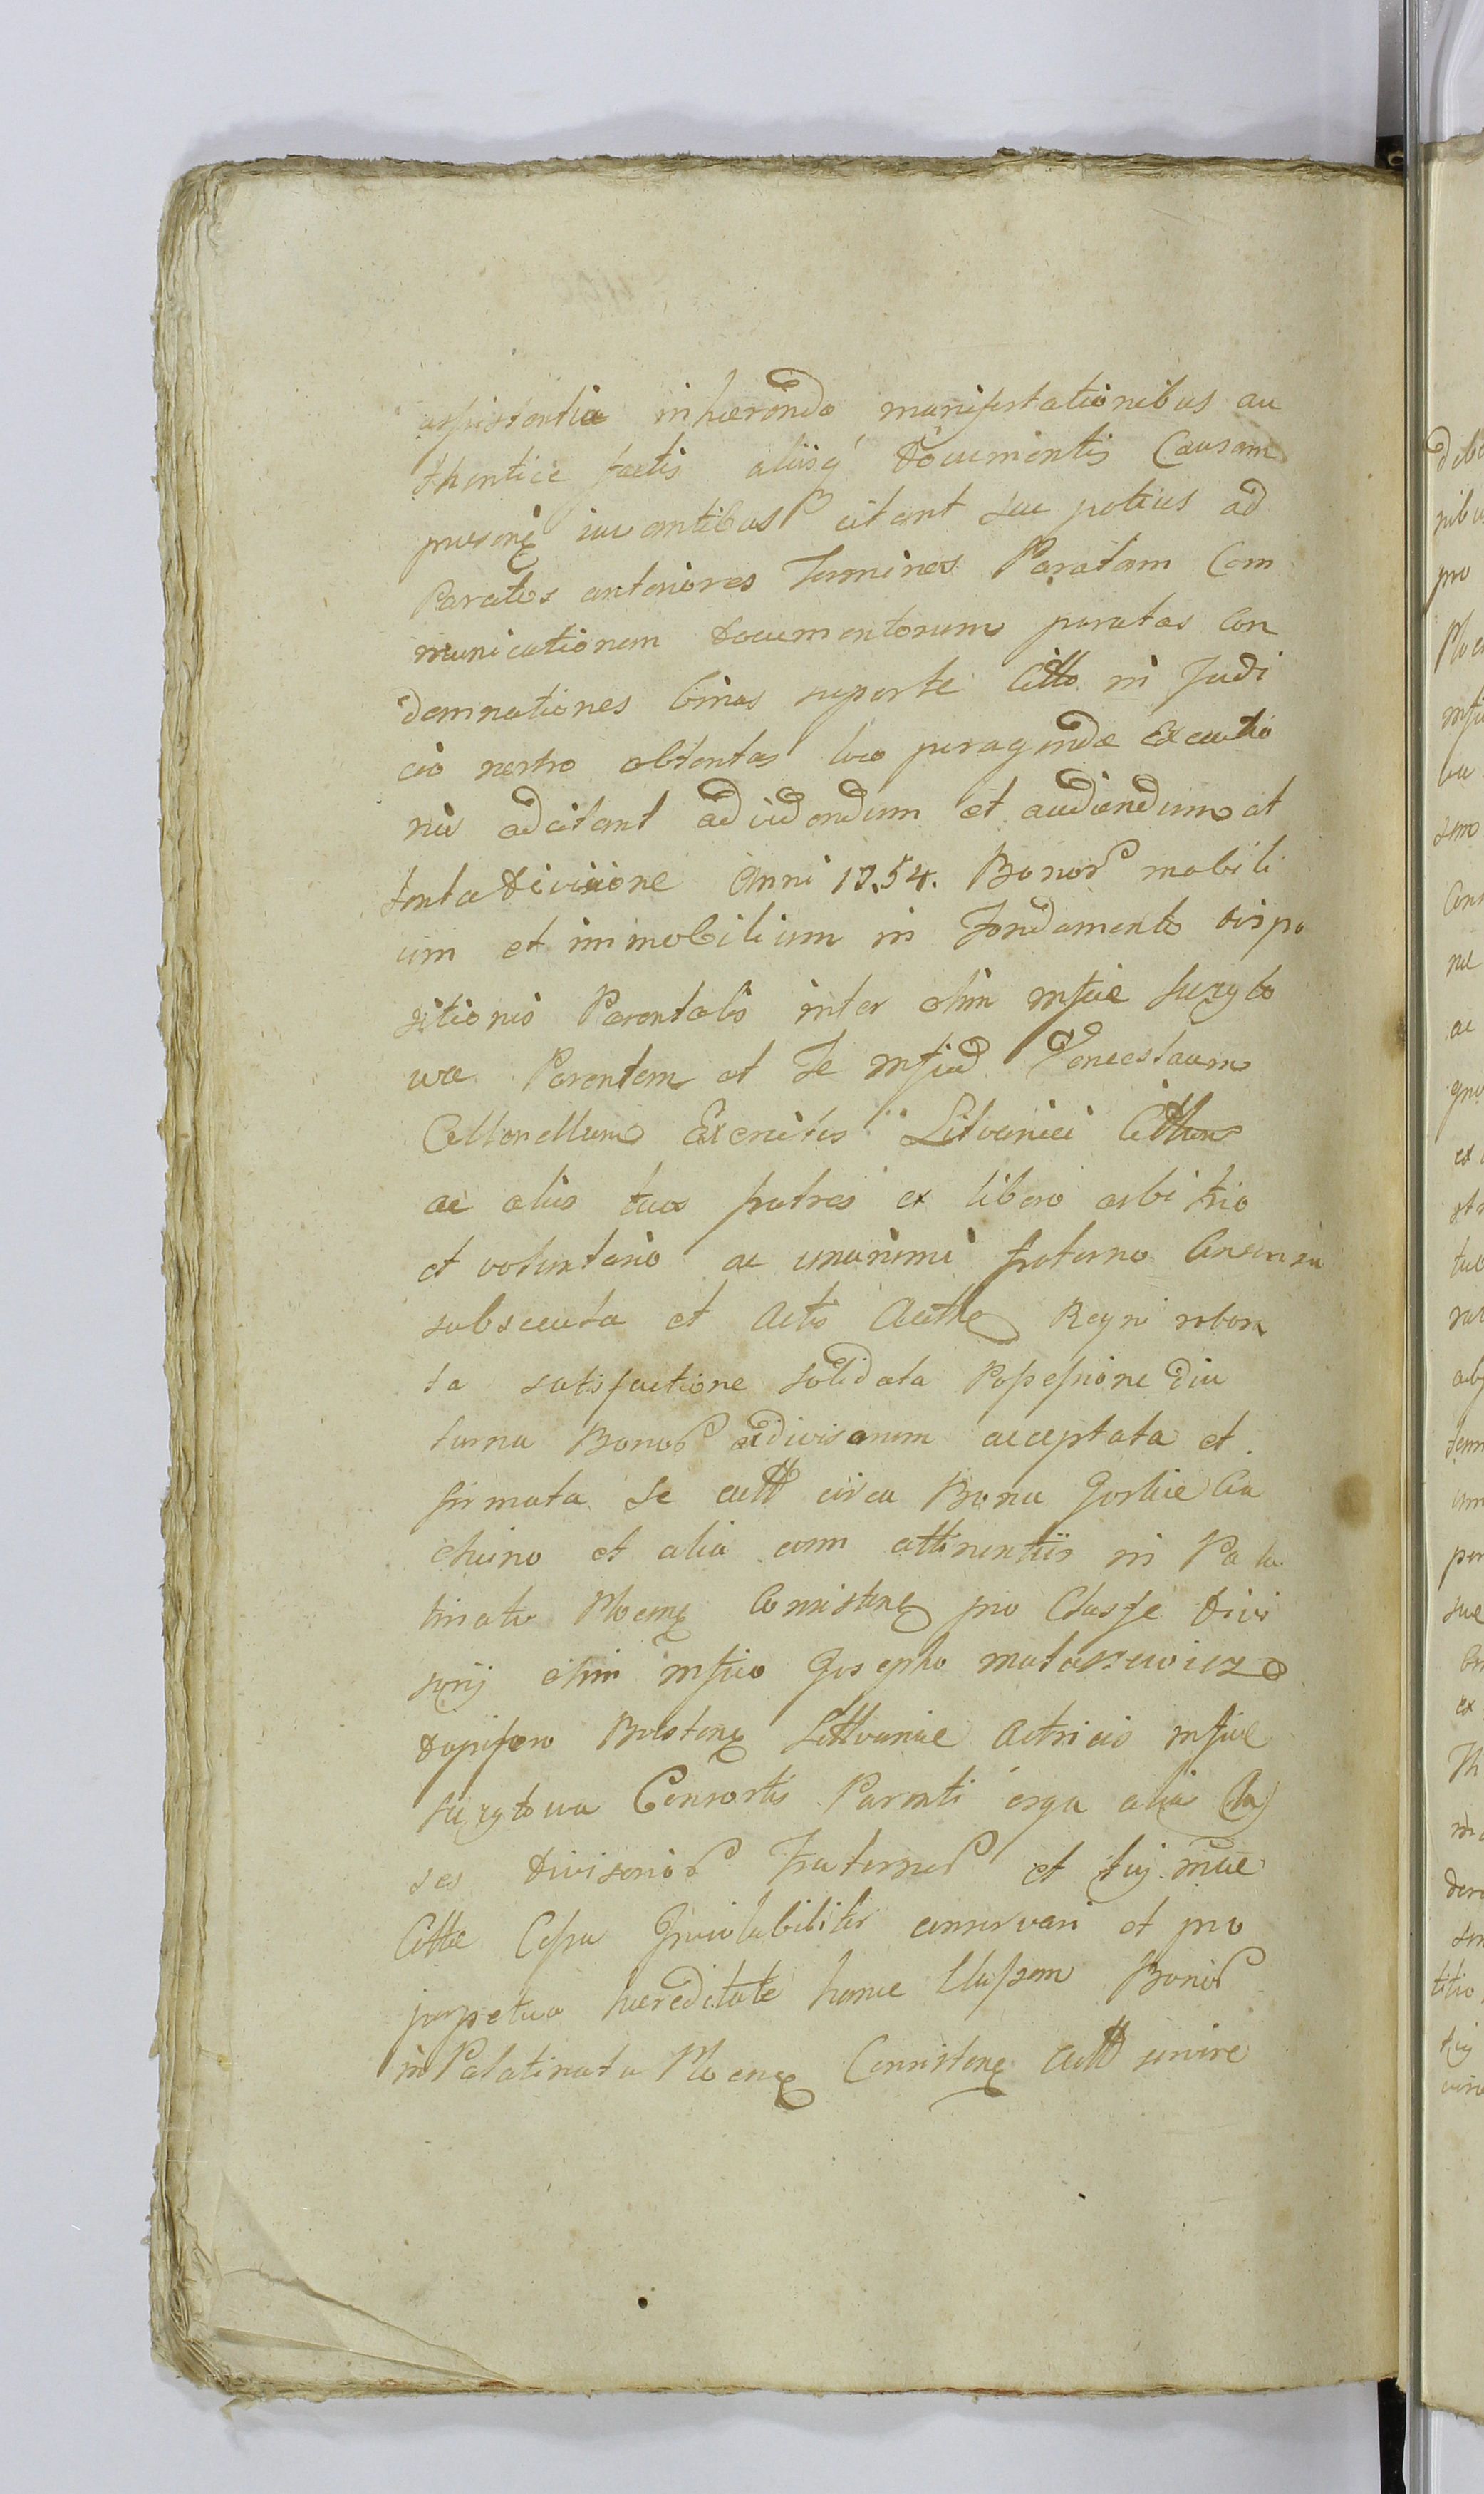 assistentia inhaerendo manifestationibus au
thentice factis aliisq́ Documentis Causam
praesenς iuvantibus citant seu potius ad
Paratos anteriores Terminos Paratam Com
municationem Documentorum paratas Con
demnationes binas super te Citto in Judi
cio nostro obtentas loco peragendae Executio
nis adcitant ad videndum et audiendum at
tenta Divisione Anni 1754. Bonor mobili
um et immobilium in Fundamento dispo
sitionis Parentalis inter olim mfice Suzyto
wa Parentem et Te mficd Venceslaum
Collonellum Exercitus Litvanici Cittum
ac alios tuos fratres ex libero arbitrio
et voluntario ac unanimi fraterno Consensu
subsecuta et Actis Authen Regni robora
ta satisfactione solidata Possessione diu
turna Bonor exdivisorum acceptata et
firmata se actt circa Bona Gorkie Cie
chuino et alia cum attinentiis in Pala
tinatu Plocenς Consistenς pro Classe divi
sorij olim mfico Josepho matarewicz
dapifero Brestenς Littvaniae Actricis mficae
Suzytowa Consortis Parenti erga alias Clas
ses divisorior Fraternas et tuj mae
Cittae Cessa Inviolabiliter conservari et pro
perpetua haereditate hanc Classem Bonor
in Palatinatu Plocenς Consistenς actt servire